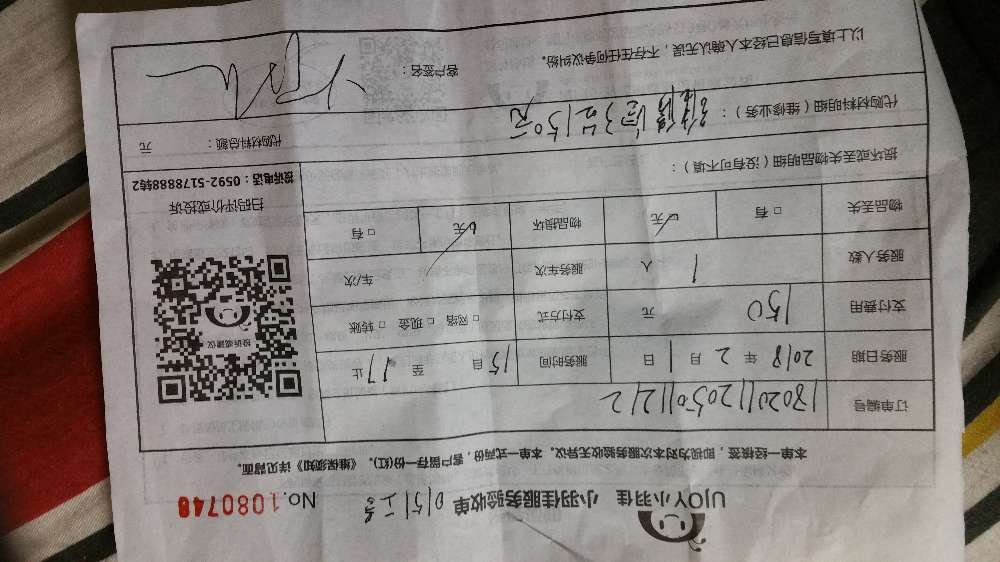 UJOY小羽佳 小羽佳服务验收单 No.1080740
本单一经核签，即视为对本次服务验收无异议。本单一式两份，客户留存一份(红)。《维保须知》详见背面。
订单编号 18020112050112112
服务日期 2018 年 2 月 1 日 服务时间 15 自 至 17 止
支付费用 150 元 支付方式 □ 网络 □ 现金 □ 转账
服务人数 1 人 服务车次 车/次
物品丢失 □ 有 无 物品损坏 无 □ 有
损坏或丢失物品明细（没有可不填）：
投诉或建议
扫码评价或投诉
投诉电话：0592-5178888转2
代购材料明细（维修业务）： 150元
代购材料总额： 元
以上填写信息已经本人确认无误，不存在任何争议纠纷。 客户签名：